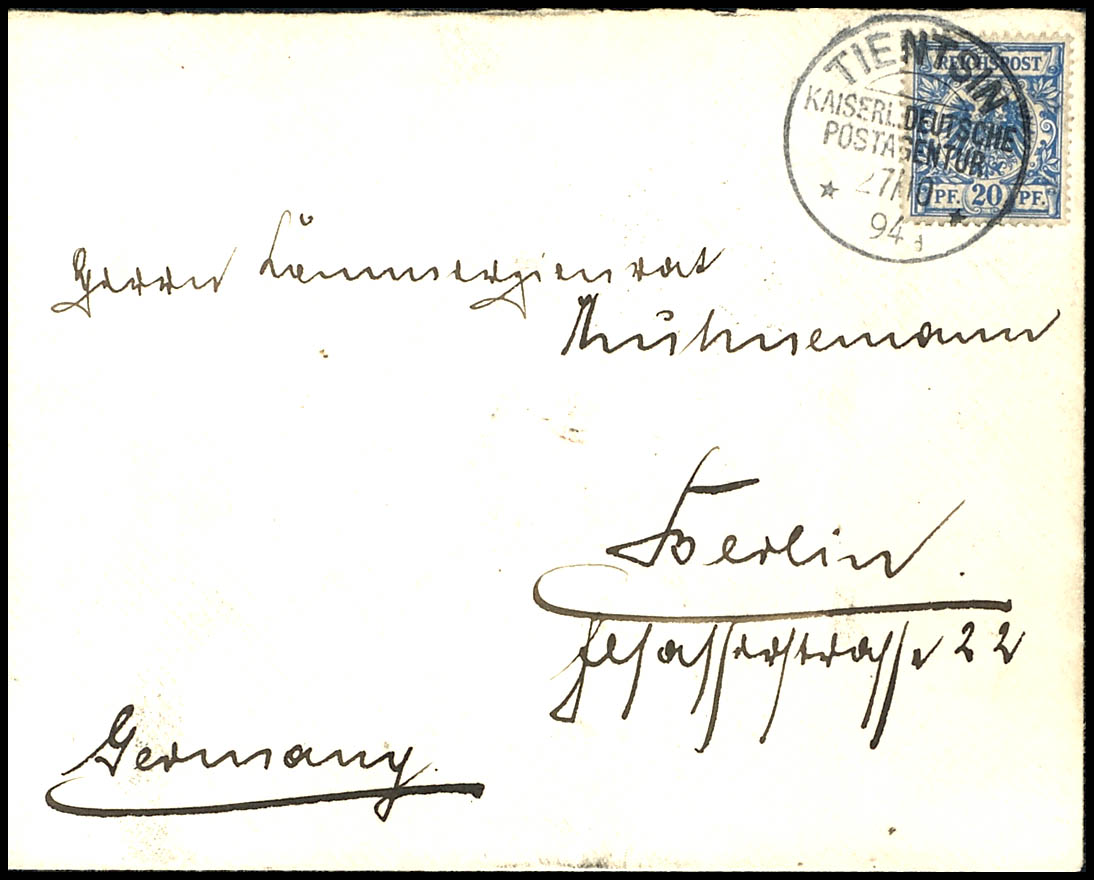 TIENTSIN
KAISERL. DEUTSCHE
POSTAGENTUR
27/10
94
REICHSPOST
PF. 20 PF.
Herrn Commerzienrat
Kühnemann
Berlin.
Elsasserstrasse 22
Germany.